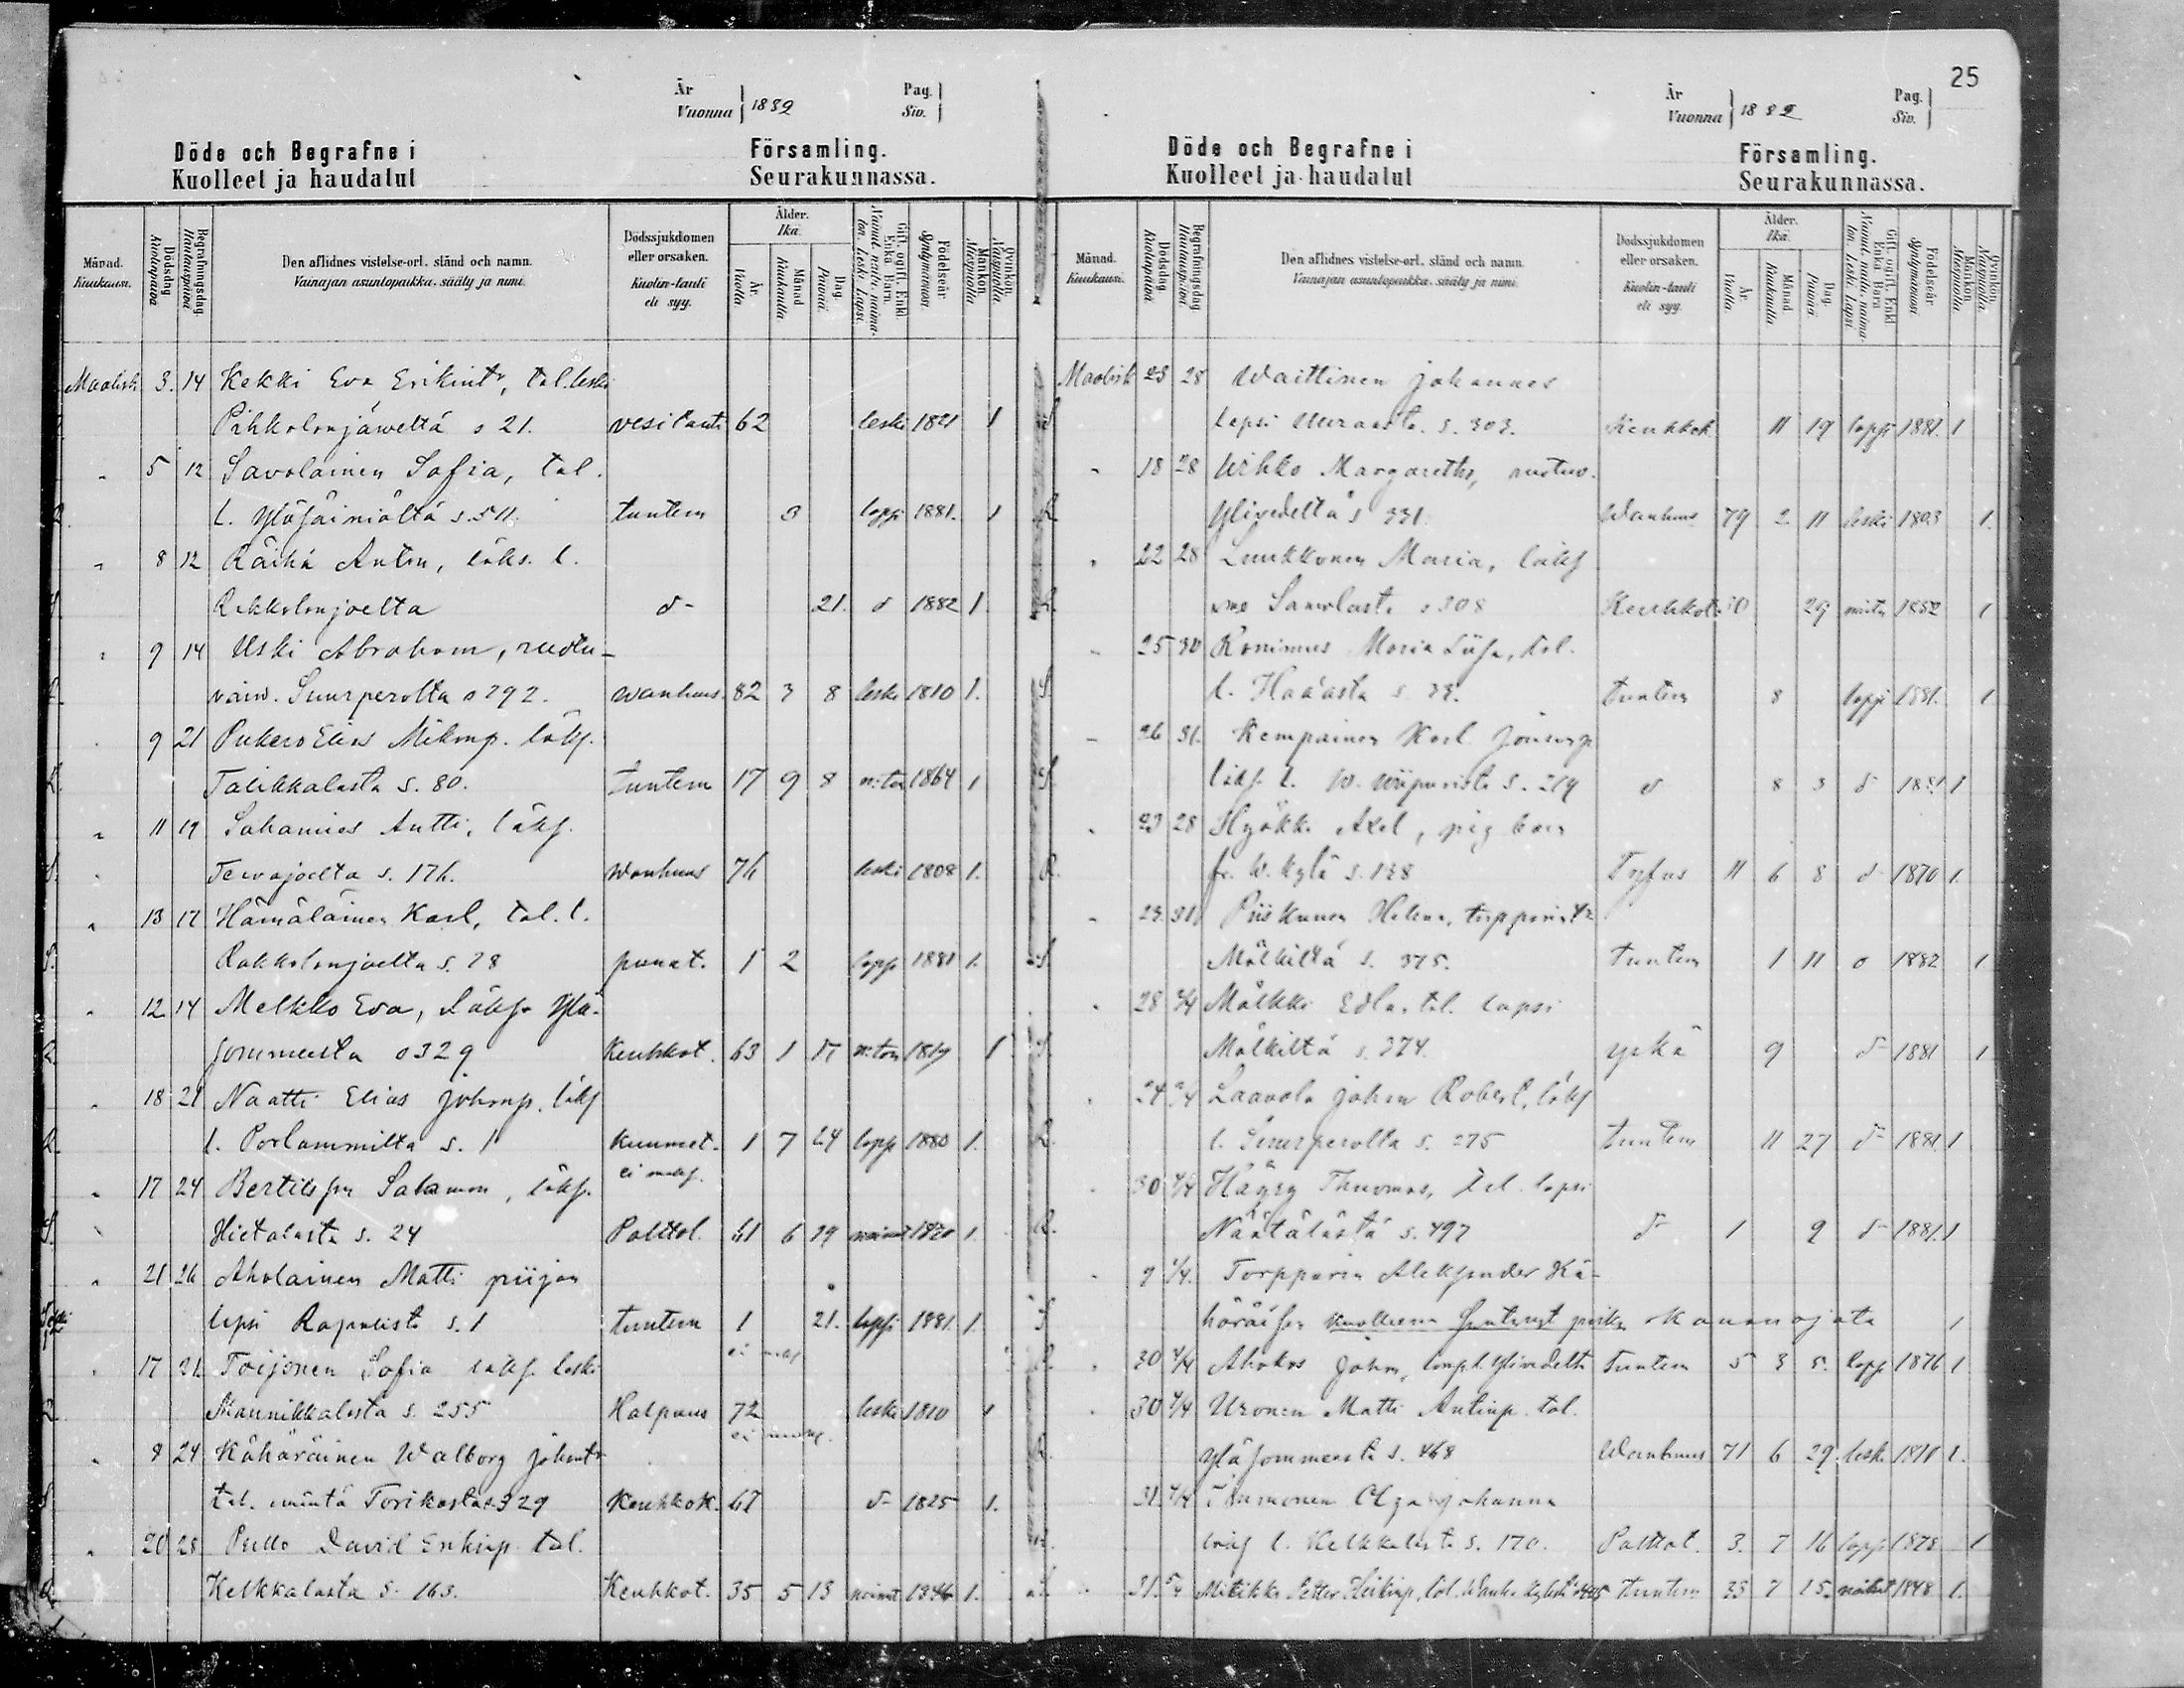 År Vuonna 1882 Pag. Siv.
Döde och Begrafne i Församling.
Kuolleet ja haudatut Seurakunnassa.
Månad. Kuukausi. Dödsdag Kuolinpäivä Begrafningsdag. Hautauspäivä Den aflidnes vistelse-ort, stånd och namn. Vainajan asuntopaikka, sääty ja nimi. Dödssjukdomen eller orsaken. Kuolin-tauti eli syy. Ålder. Ikä. År. Vuotta Månad Kuukautta Dag. Päivää. Gift, ogift, Enkl. Enka Barn. Nainut, naitu, naimaton, Leski, Lapsi. Födelseår Syntymävuosi. Mankön Miespuolia Qvinkön. Naispuolia
Maalisk 3. 14 Kekki Eva Erikint, tal. leski
Pihkolanjäweltä s 21. vesitauti 62 leski 1821 1
5 12 Savolainen Sofia, tal.
l. Yläsäiniöltä s. 511. tuntem 3 lapsi 1881. 1
8 12 Räihä Anton, löks. l.
Rakkolanjoelta d- 21. d 1882 1
9 14 Uski Abraham, ruotu-
vaiw. Suurperolta s 292. wanhuus. 82 3 8 leski 1810 1.
9 21 Pukero Elias Mikonp. löks.
Talikkalasta s. 80. tuntem 17 9 8 n:ton 1864 1
11 19 Sahamies Antti, löks.
Tervajoelta s. 176. Wanhuus 76 leski 1808 1.
13 17 Hämäläinen Karl, tal. l.
Rakkolanjoelta s. 28 punat. 1 2 laps 1881 1.
12 14 Melkko Eva, löks Ylä-
sommeesta s 329 Keuhkot. 63 1 17 n:ton 1819 1
18 21 Naatti Elias Johanp. löks
l. Porlammilta s. 1 kuumet. 1 7 24 laps 1880 1.
17 24 Bertilsson Salamon, löks.
Hietalasta s. 24 Polttot. 61 6 29 nainut 1820 1.
21 26 Aholainen Matti piijan
lapsi Rapalista s. 1 tuntem 1 21. lapsi 1881. 1.
17 21 Toijonen Sofia löks. leski
Mannikkalasta s. 255 Halpaus 72 leski 1810 1
8 24 Kähäräinen Walborg Johant
tal. emäntä Torikasta s. 329 Keuhkok. 67 d- 1825 1.
20 28 Pullo David Erkinp. tal.
Kelkkalasta s. 163. Keuhkot. 35 5 13 nainut 1846 1.
25
År Vuonna 1882 Pag. Siv.
Döde och Begrafne i Församling.
Kuolleet ja haudatut Seurakunnassa.
Månad. Kuukausi. Dödsdag Kuolinpäivä Begrafningsdag Hautauspäivä Den aflidnes vistelse-ort, stånd och namn. Vainajan asuntopaikka, sääty ja nimi. Dödssjukdomen eller orsaken. Kuolin-tauti eli syy. Ålder. Ikä. År. Vuotta. Månad. Kuukautta Dag. Päivää. Födelseår Syntymävuosi. Mankön Miespuolia Qvinkön. Naispuolia
Maalisk 23 28 Waittinen Johannes
lapsi s. 303. Keuhkok 11 19 lapsi 1881. 1
18 28 Uihko Margaretha, ruotuv.
Ylivedeltä s 331. Wanhuus 79 2 11 leski 1803 1.
22 28 Luukkonen Maria, löks
s 308 Keuhkot. 30 29 1852 1
25 30 Ronimus Maria Liisa, tal.
l. Haaasta s. 33. tuntem 8 lapsi 1881. 1
26 31. Kempainen Karl
löks. l. W. Wiipurista s. 219 d 8 3 d 1881 1
23 28 Hyökki Axel, pig barn
fr. W. Kylä s. 138 Tyfus 11 6 8 d 1870 1.
23. 31. Piiskunen Helena,
Mälkiltä s. 375. tuntem 1 11 d 1882 1
28 2/4 Mälkki Edla, tal. lapsi
Mälkiltä s. 374. yskä 9 d- 1881 1
Laavola Johan Robert, löks
l. Suurperolta s. 275 tuntem 11 27 d- 1881 1
30 Häyry Thuomas, tal. lapsi
Näätälästä s. 497 d- 1 9 d- 1881. 1
9 Torpparin Aleksander Kä-
häräisen kuolleena syntynyt poika 1
30 Ahokas Johan, Ylivedeltä tuntem 5 3 5. laps 1876 1
30 Uronen Matti Antinp. tal.
Yläsommeesta s. 468 Wanhuus 71 6 29. lesk. 1.
31. Immonen Olga Johanna
löks l. Kelkkalasta s. 170. Polttot. 3. 7 16 laps 1878 1
31. Mitikka Petter Heikinp. tal. tuntem 33 7 15. nainut 1848 1.